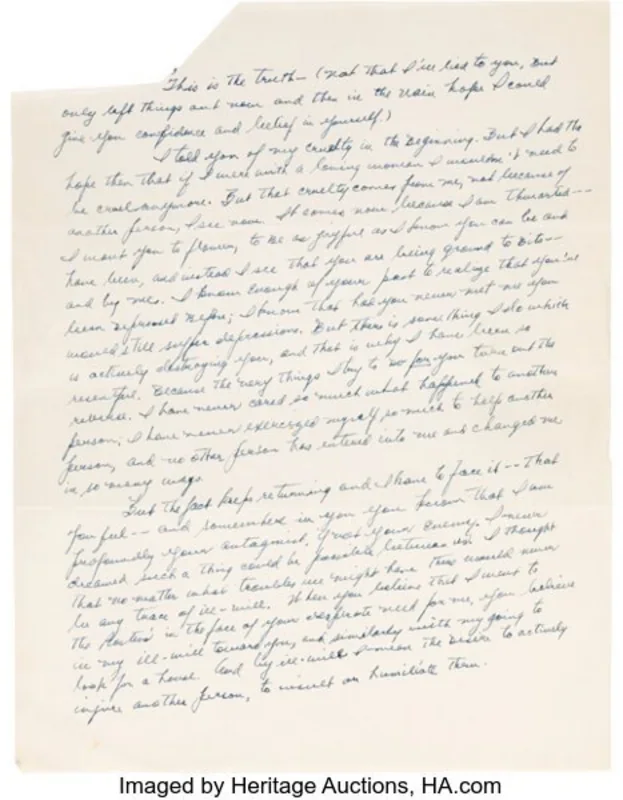 This is the truth — (not that I've lied to you, but
only left things out now and then in the vain hope I could
give you confidence and belief in yourself.)
I told you of my cruelty in the beginning. But I had the
hope then that if I were with a loving woman I wouldn't need to
be cruel anymore. But that cruelty comes from me, not because of
another person, I see now. It comes now because I am thwarted --
I want you to flower, to be as joyful as I know you can be and
have been, and instead I see that you are being ground to bits --
and by me. I know enough of your past to realize that you've
been depressed before; I know that had you never met me you
would still suffer depressions. But there is something I do which
is actively destroying you, and that is why I have been so
resentful. Because the very things I try to do for you turn out the
reverse. I have never cared so much what happened to another
person; I have never exercized myself so much to help another
person, and no other person has entered into me and changed me
in so many ways.
But the fact keeps returning and I have to face it -- that
you feel -- and somewhere in you you know that I am
profoundly your antagonist, if not your enemy. I never
dreamed such a thing could be possible between us. I thought
that no matter what troubles we might have there would never
be any trace of ill-will. When you believe that I went to
the in the face of your desperate need for me, you believe
in my ill-will toward you, and similarly with my going to
look for a house. And by ill-will I mean the desire to actively
injure another person, to insult or humiliate them.
Imaged by Heritage Auctions, HA.com